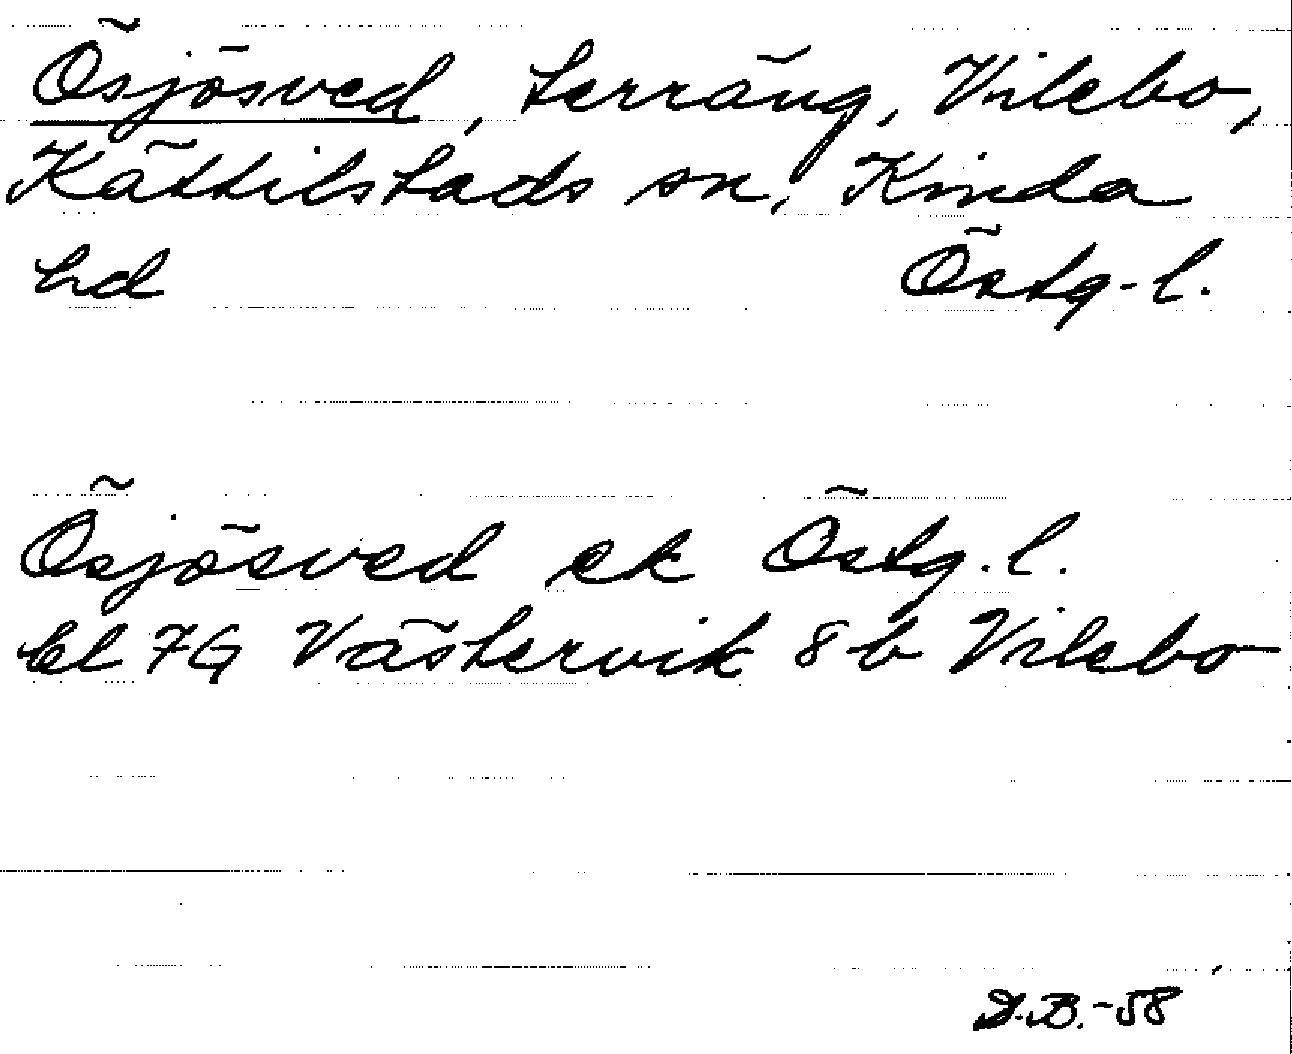 Ösjösved, terräng, Vilebo,
Kättilstads sn, Kinda
hd Östg-l.
Ösjösved ek Östg.l.
bl 7G Västervik 8b Vilebo
D.B.-58